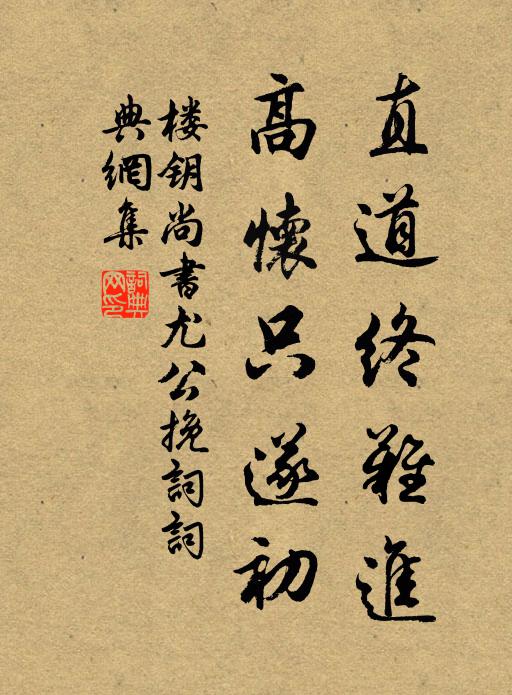 直道终难進
高懷只遂初
楼钥尚書尤公挽詞詞
典網集
詞典網印